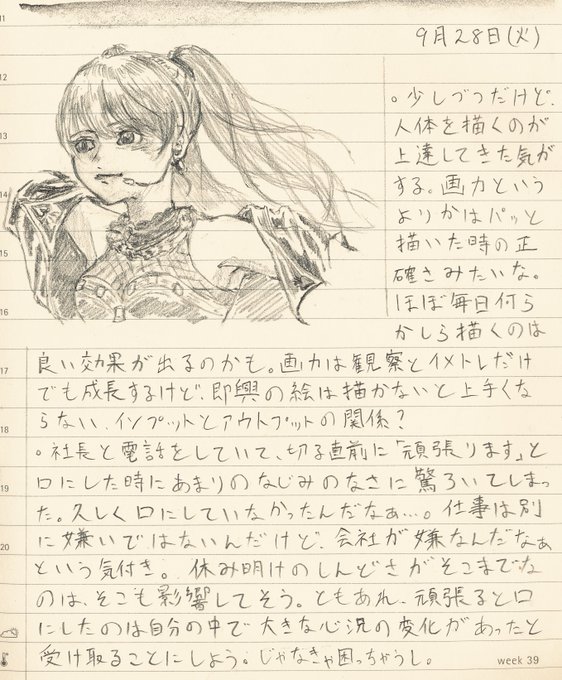 11
9月28日(火)
12
13
14
15
16
17
18
19
20
。少しづつだけど、
人体を描くのが
上達してきた気が
する。画力という
よりかはパッと
描いた時の正
確さみたいな。
ほぼ毎日何ら
かしら描くのは
良い効果が出るのかも。画力は観察とイメトレだけ
でも成長するけど、即興の絵は描かないと上手くな
らない、インプットとアウトプットの関係?
。社長と電話をしていて、切る直前に「頑張ります」と
口にした時にあまりのなじみのなさに驚ろいてしまっ
た。久しく口にしていなかったんだなぁ…。仕事は別
に嫌いではないんだけど、会社が嫌なんだなぁ
という気付き。休み明けのしんどさがそこまでな
のは、そこも影響してそう。ともあれ、頑張ると口
にしたのは自分の中で大きな心況の変化があったと
受け取ることにしよう。じゃなきゃ困っちゃうし。
week 39